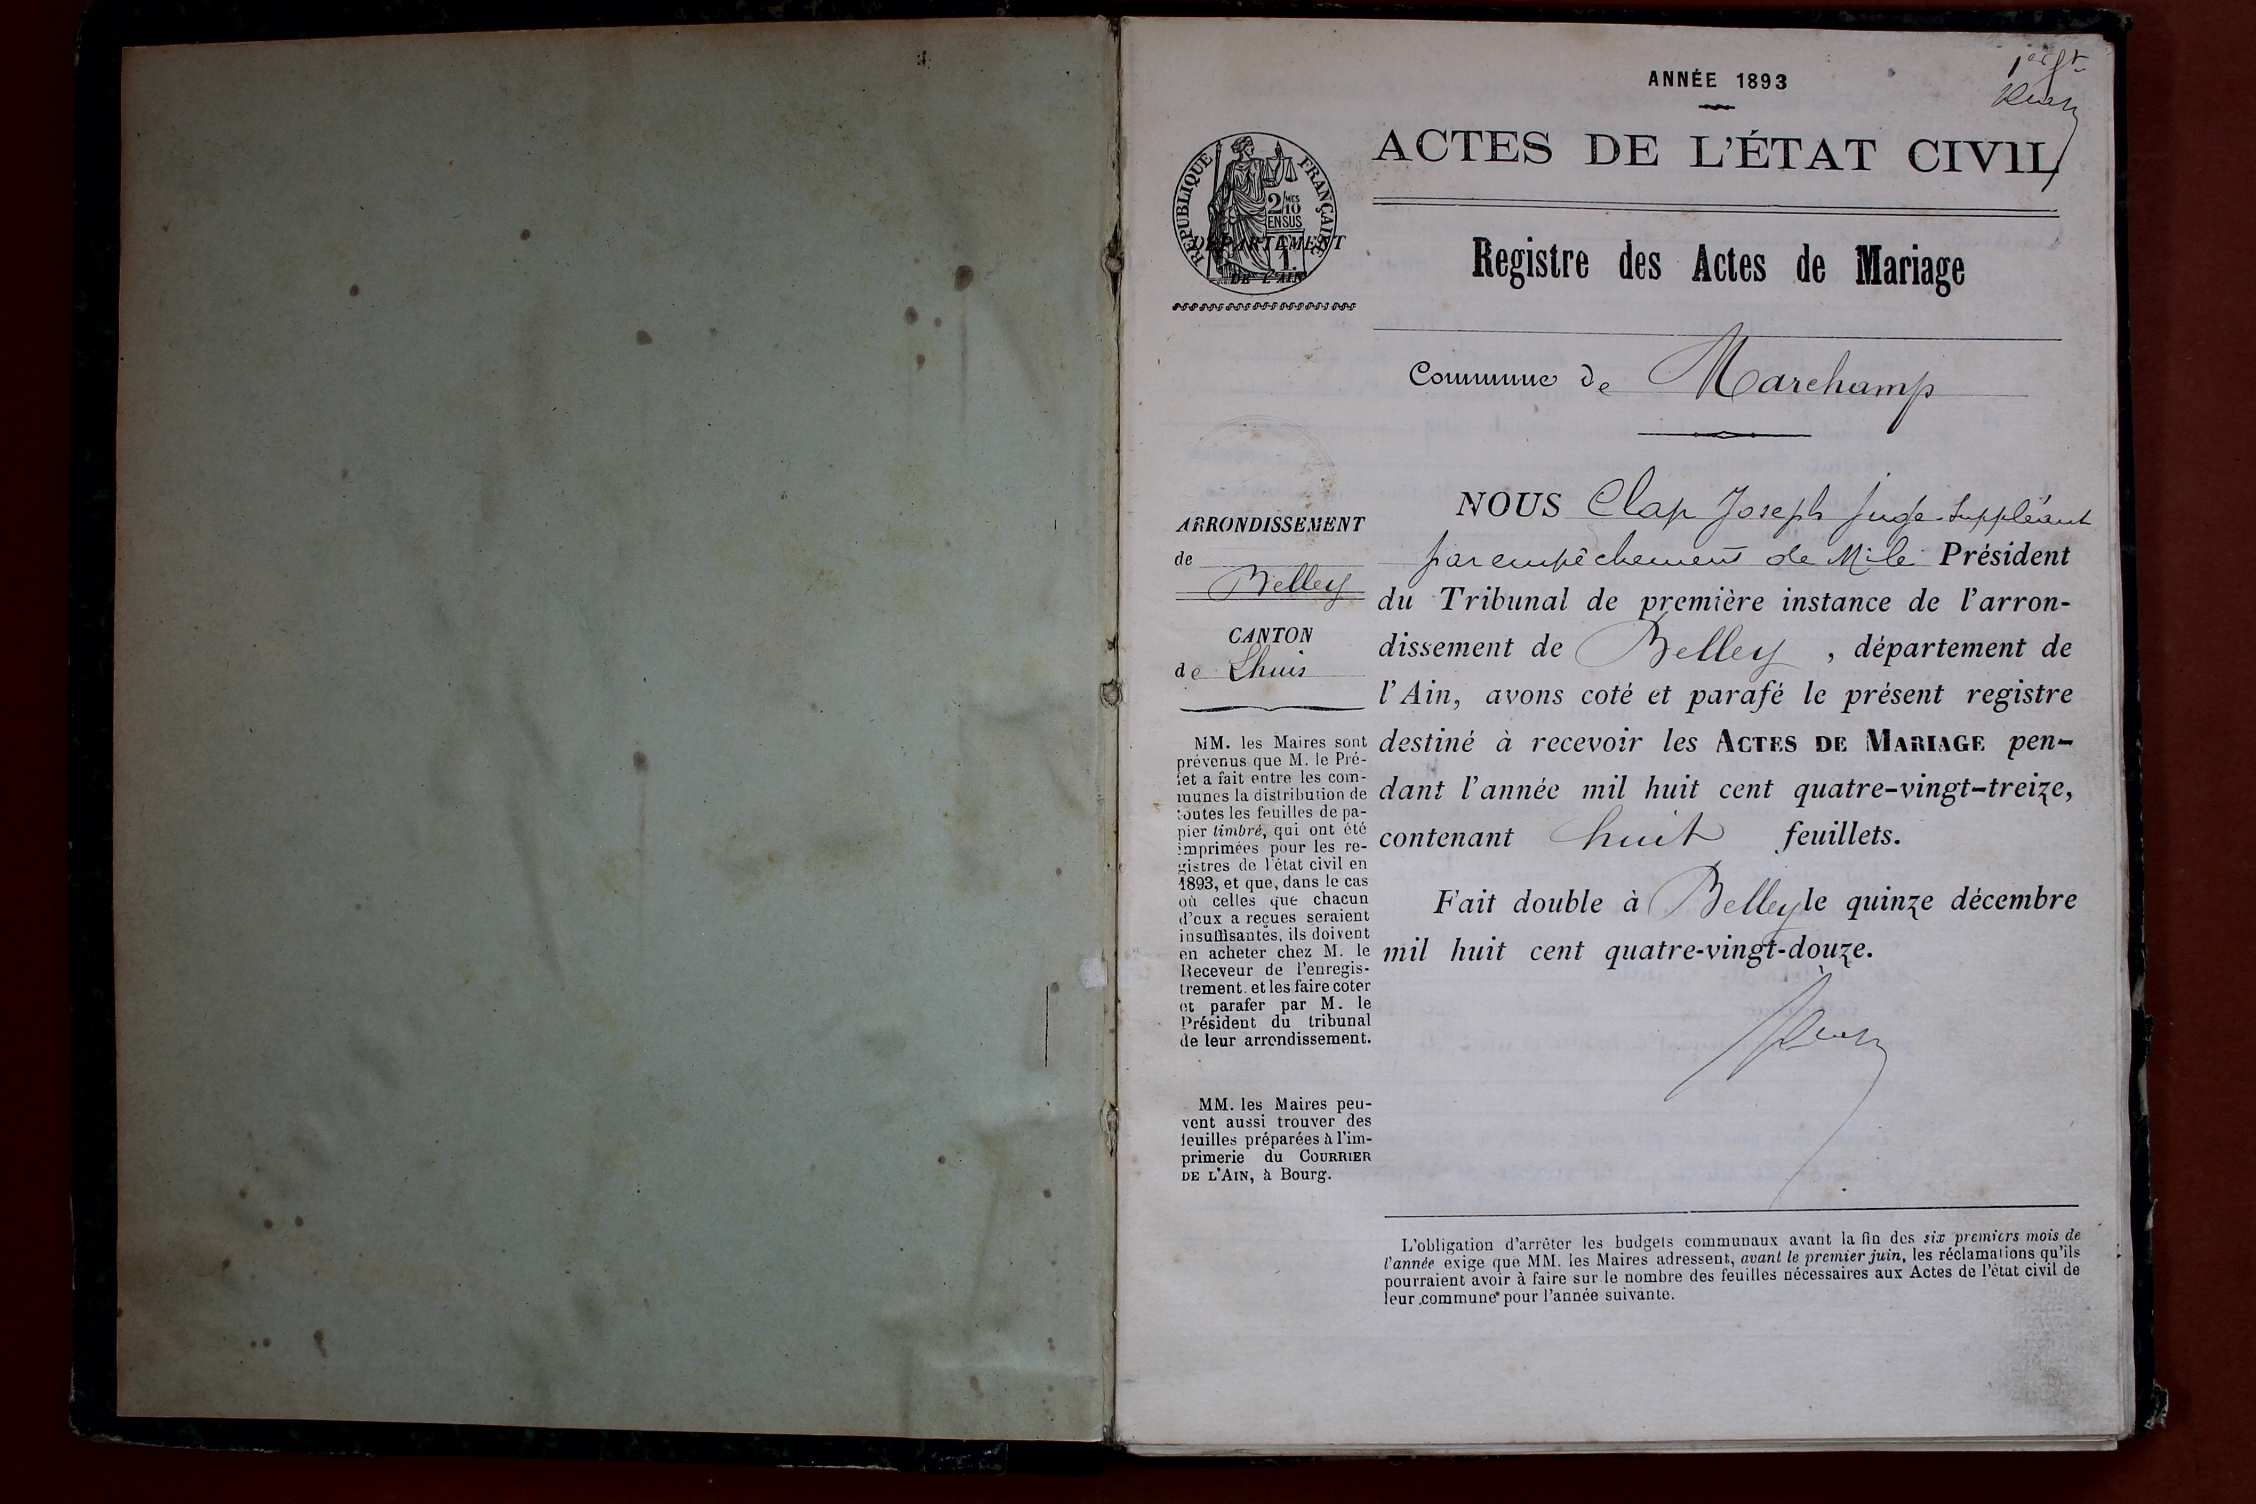 1er ft
ANNÉE 1893
ACTES DE L'ÉTAT CIVIL
RÉPUBLIQUE FRANÇAISE
2/10 MES
EN SUS
1
DÉPARTEMENT
DE L'AIN
Registre des Actes de Mariage
Commune de Marchamp
ARRONDISSEMENT
de
Belley
CANTON
de Lhuis
MM. les Maires sont
prévenus que M. le Pré-
fet a fait entre les com-
munes la distribution de
toutes les feuilles de pa-
pier timbré, qui ont été
imprimées pour les re-
gistres de l'état civil en
1893, et que, dans le cas
où celles que chacun
d'eux a reçues seraient
insuffisantes, ils doivent
en acheter chez M. le
Receveur de l'enregis-
trement. et les faire coter
et parafer par M. le
Président du tribunal
de leur arrondissement.
MM. les Maires peu-
vent aussi trouver des
feuilles préparées à l'im-
primerie du COURRIER
DE L'AIN, à Bourg.
NOUS Clap Joseph Juge-Suppléant
par empêchement de M. le Président
du Tribunal de première instance de l'arron-
dissement de Belley, département de
l'Ain, avons coté et parafé le présent registre
destiné à recevoir les ACTES DE MARIAGE pen-
dant l'année mil huit cent quatre-vingt-treize,
contenant huit feuillets.
Fait double à Belley le quinze décembre
mil huit cent quatre-vingt-douze.
L'obligation d'arrêter les budgets communaux avant la fin des six premiers mois de
l'année exige que MM. les Maires adressent, avant le premier juin, les réclamations qu'ils
pourraient avoir à faire sur le nombre des feuilles nécessaires aux Actes de l'état civil de
leur commune pour l'année suivante.